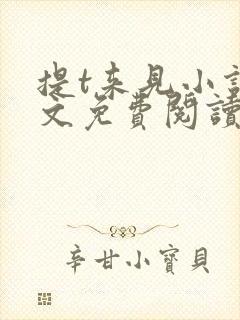 提t来见小說
文免費閱讀
辛甘小寶貝